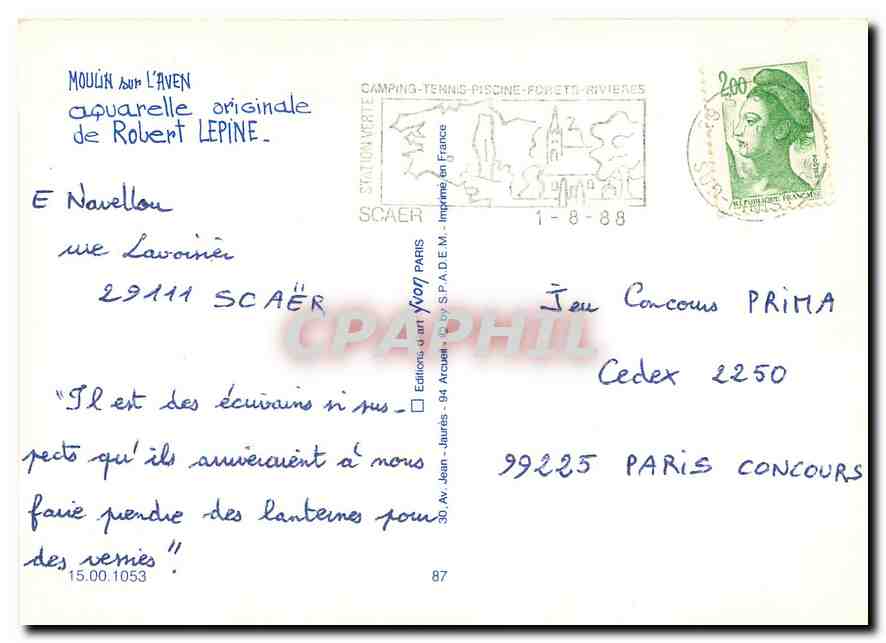 MOULIN sur L'AVEN
aquarelle originale
de Robert LEPINE_
CAMPING-TENNIS-PISCINE-FORETS-RIVIERES
STATION VERTE
SCAER
1-8-88
2,00
REPUBLIQUE FRANÇAISE
E Navellou
rue Lavoisier
29111 SCAËR
"Il est des écrivains si sus-
pects qu'ils arriveraient à nous
faire prendre des lanternes pour
des vessies"!
15.00.1053
87
Editions d'art yvon PARIS
30, Av. Jean - Jaurès - 94 Arcueil - © by S.P.A.D.E.M. - Imprimé en France
Jeu Concours PRIMA
Cedex 2250
99225 PARIS CONCOURS
CPAPHIL